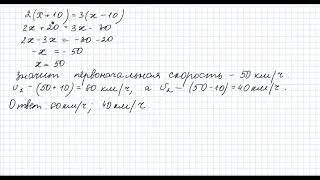 2(x+10)=3(x-10)
2x+20=3x-30
2x-3x=-30-20
-x=-50
x=50
Значит первоначальная скорость - 50 км/ч.
V₁ - (50+10)=60 км/ч, а V₂ - (50-10)=40 км/ч.
Ответ: 60 км/ч; 40 км/ч.